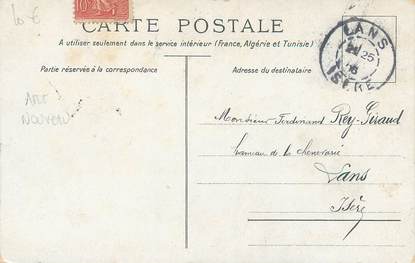 10 €
10
CARTE POSTALE
A utiliser seulement dans le service intérieur (France, Algérie et Tunisie)
Partie réservée à la correspondance
Adresse du destinataire
LANS
25
ISÈRE
ART
NOUVEAU
Monsieur Ferdinand Rey-Giraud
hameau de la
Lans
Isère